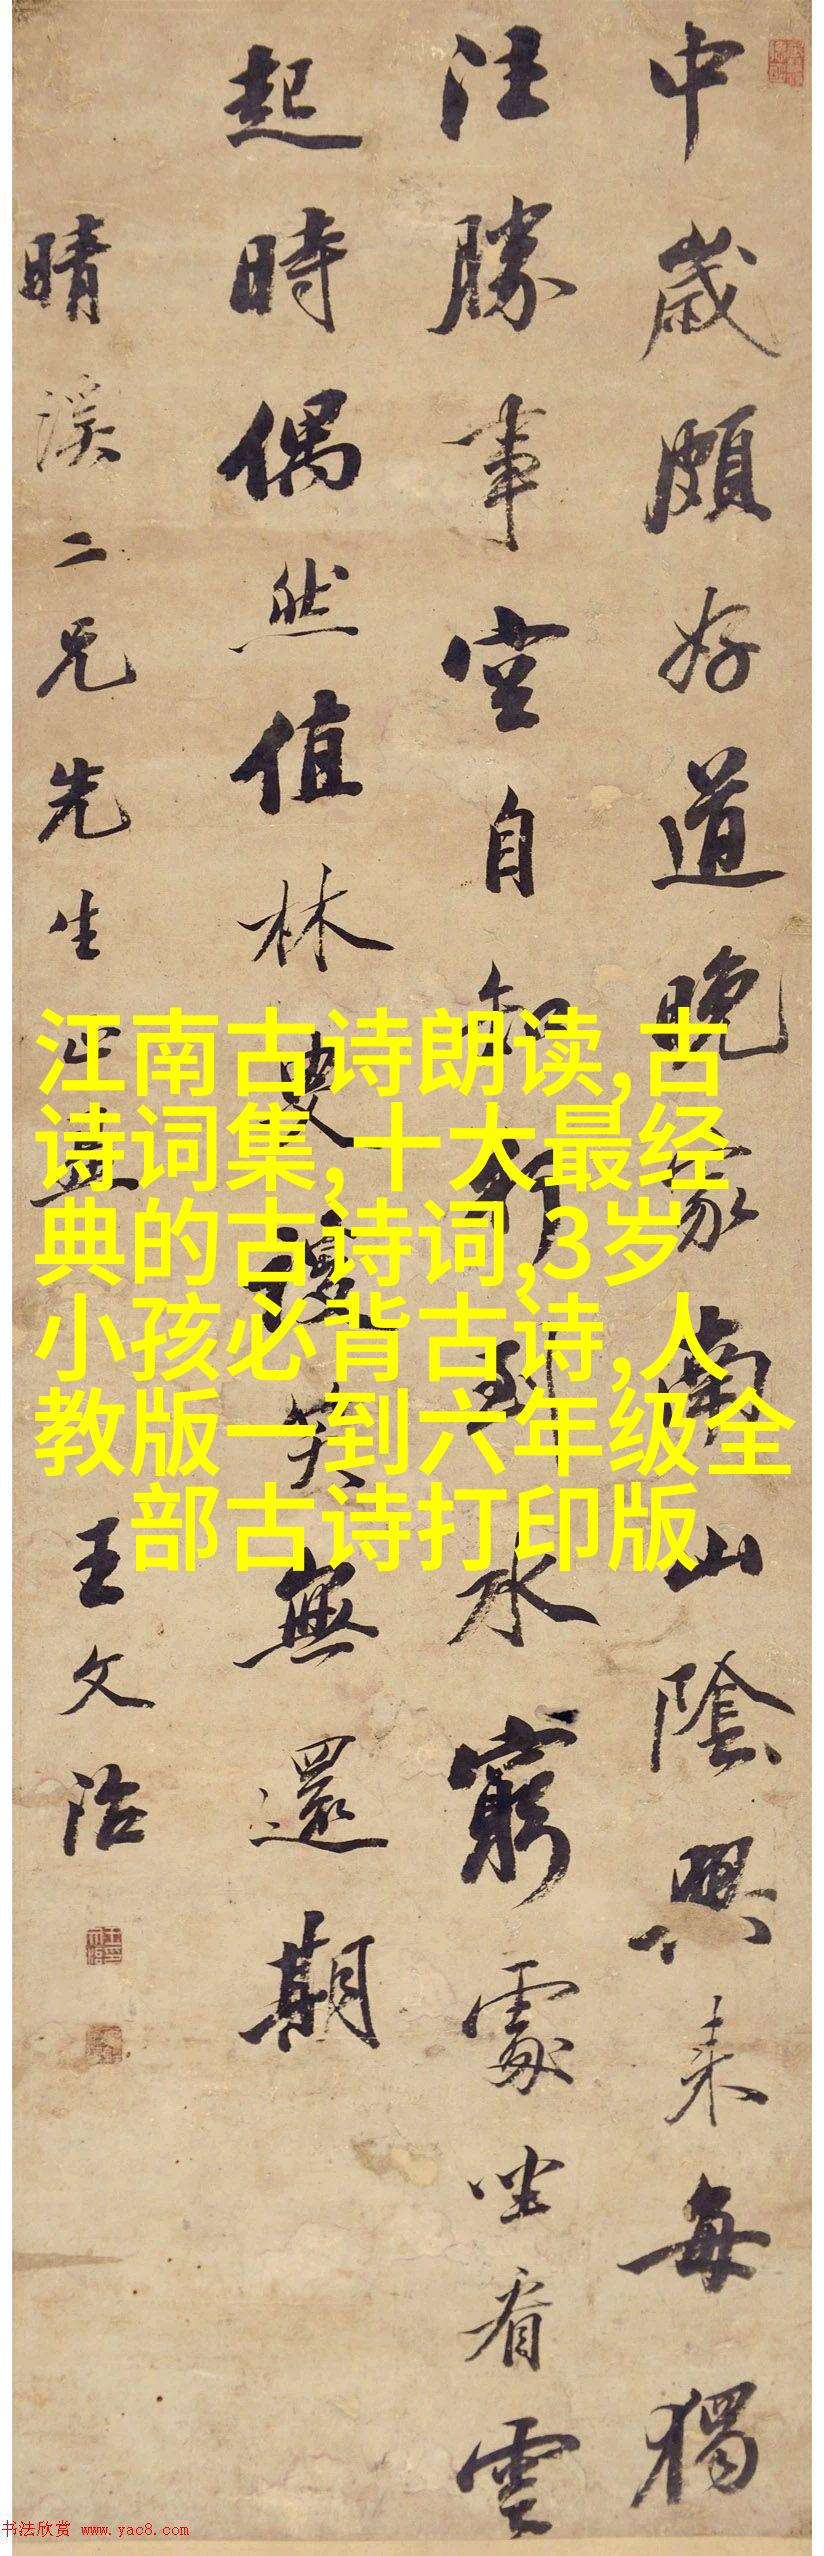 中歲頗好道晚家南山陰興来每獨
往勝事空自知行到水窮處坐看雲
起時偶然值林叟談笑無還期
晴溪二兄先生 王文治
江南古诗朗读,古
诗词集,十大最经
典的古诗词,3岁
小孩必背古诗,人
教版一到六年级全
部古诗打印版
书法欣赏 www.yac8.com